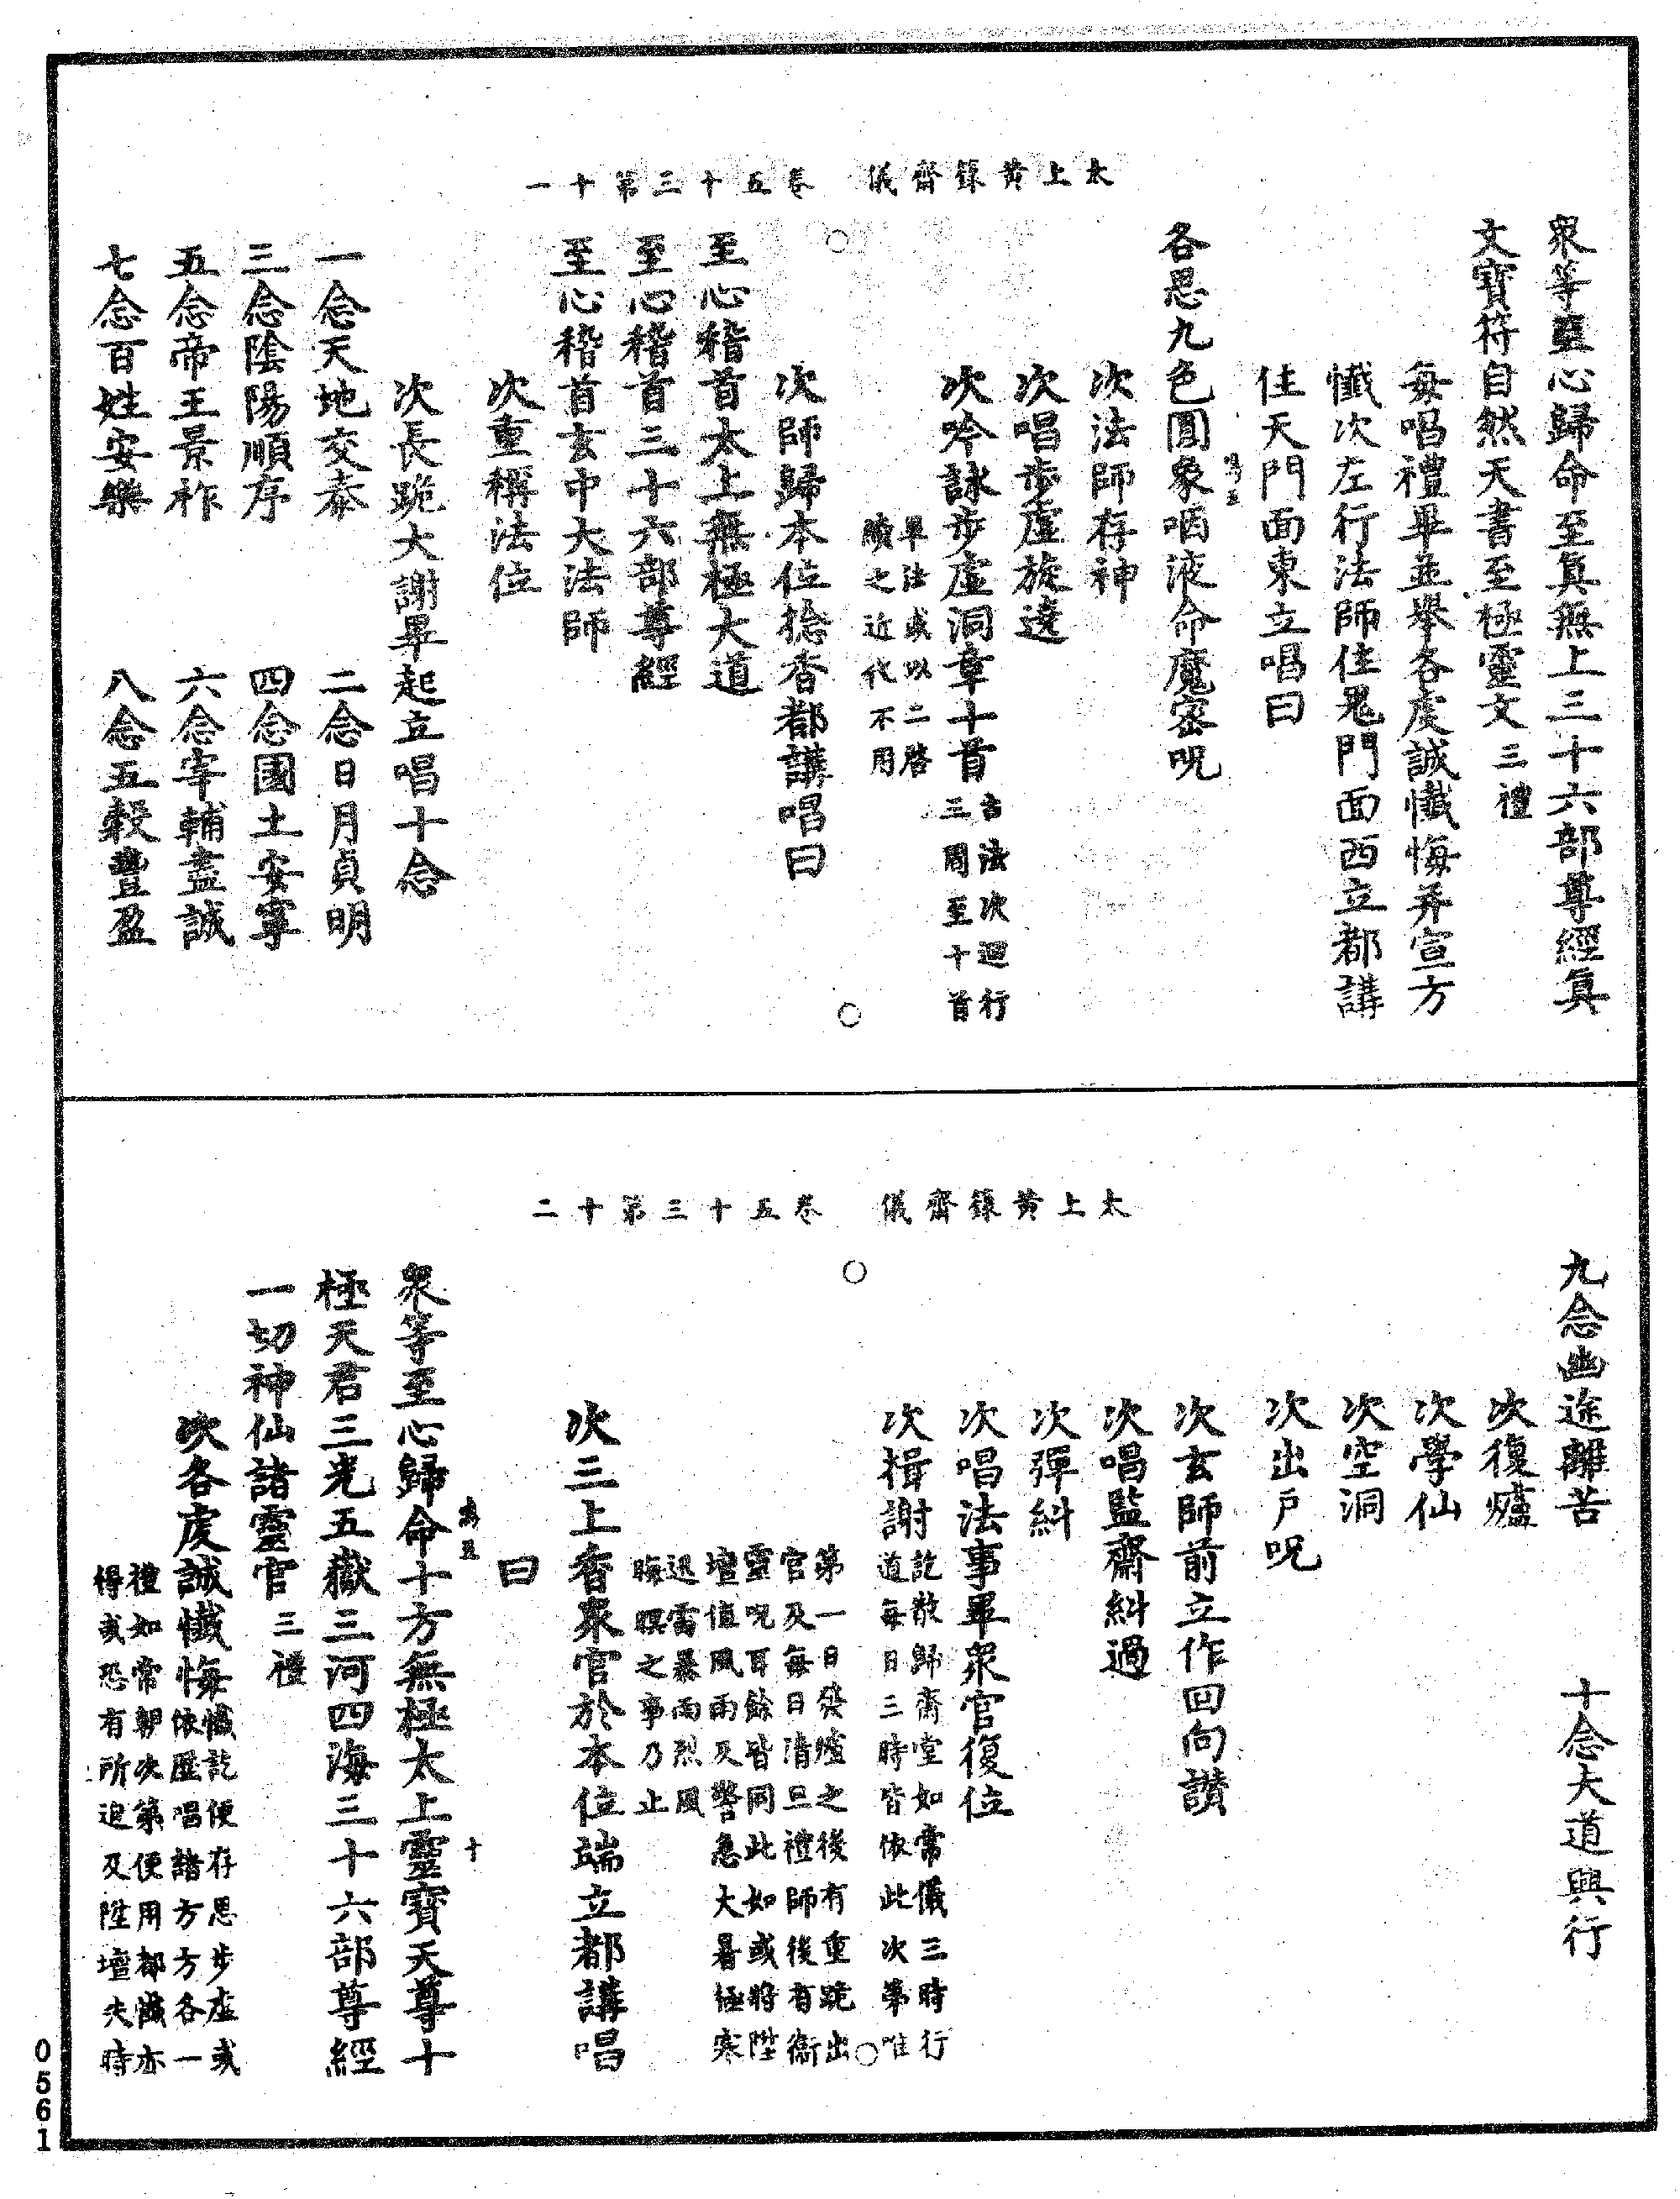 太上黃籙齋儀　卷五十三第十一
衆等至心歸命至真無上三十六部尊經真
文寶符自然天書至極靈文三禮
每唱禮畢並舉各虔誠懺悔并宣方
懺次左行法師住鬼門面西立都講
住天門面東立唱曰
各思九色圓象咽液命魔密呪
次法師存神
次唱步虛旋遶
次吟詠步虛洞章十首古法次迴行
三周至十首
畢法或以二啓
之近代不用
次師歸本位捻香都講唱曰
至心稽首太上無極大道
至心稽首三十六部尊經
至心稽首玄中大法師
次重稱法位
次長跪大謝畢起立唱十念
一念天地交泰　二念日月貞明
三念陰陽順序　四念國土安寧
五念帝王景祚　六念宰輔盡誠
七念百姓安樂　八念五穀豐盈
太上黃籙齋儀　卷五十三第十二
九念幽途離苦　十念大道興行
次復爐
次學仙
次空洞
次出戶呪
次玄師前立作回向讚
次唱監齋糾過
次彈糾
次唱法事畢衆官復位
次揖謝訖散歸齋堂如常儀三時行
道每日三時皆依此次第唯
第一日發爐之後有重跪出
官及每日清旦禮師後有衞
靈呪耳餘皆同此如或將陞
壇值風雨及警急大暑極寒
迅雷暴雨烈風
晦暝之事乃止
次三上香衆官於本位端立都講唱
曰
衆等至心歸命十方無極太上靈寶天尊十
極天君三光五嶽三河四海三十六部尊經
一切神仙諸靈官三禮
次各虔誠懺悔懺訖便存思步虛或
依歷唱諸方方各一
禮如常朝次第便用都懺亦
得或恐有所迫及陞壇失時
0561